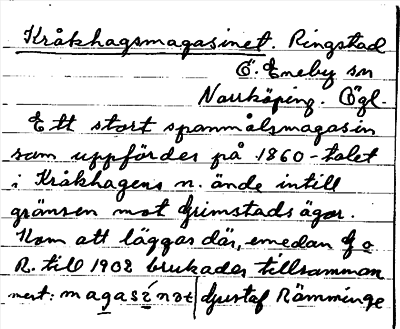 Kråkhagsmagasinet. Ringstad
Ö. Eneby sn
Norrköping. Ögl.
Ett stort spannmålsmagasin
som uppfördes på 1860-talet
i Kråkhagens n. ände intill
gränsen mot Grimstads ägor.
Kom att läggas där, emedan G o
R. till 1902 brukades tillsamman
nert: magasinet Gustaf Rämminge